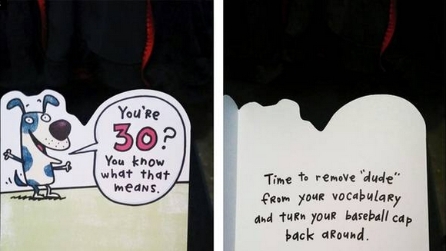 You're
30?
You know
what that
means.
Time to remove "dude"
from your vocabulary
and turn your baseball cap
back around.